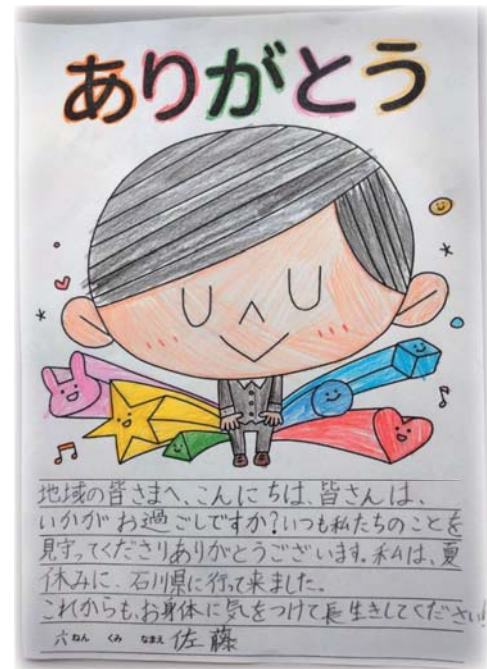 ありがとう
地域の皆さまへ、こんにちは、皆さんは、
いかがお過ごしですか?いつも私たちのことを
見守ってくださりありがとうございます。私は、夏
休みに、石川県に行って来ました。
これからも、お身体に気をつけて長生きしてください!
六ねん くみ なまえ 佐藤